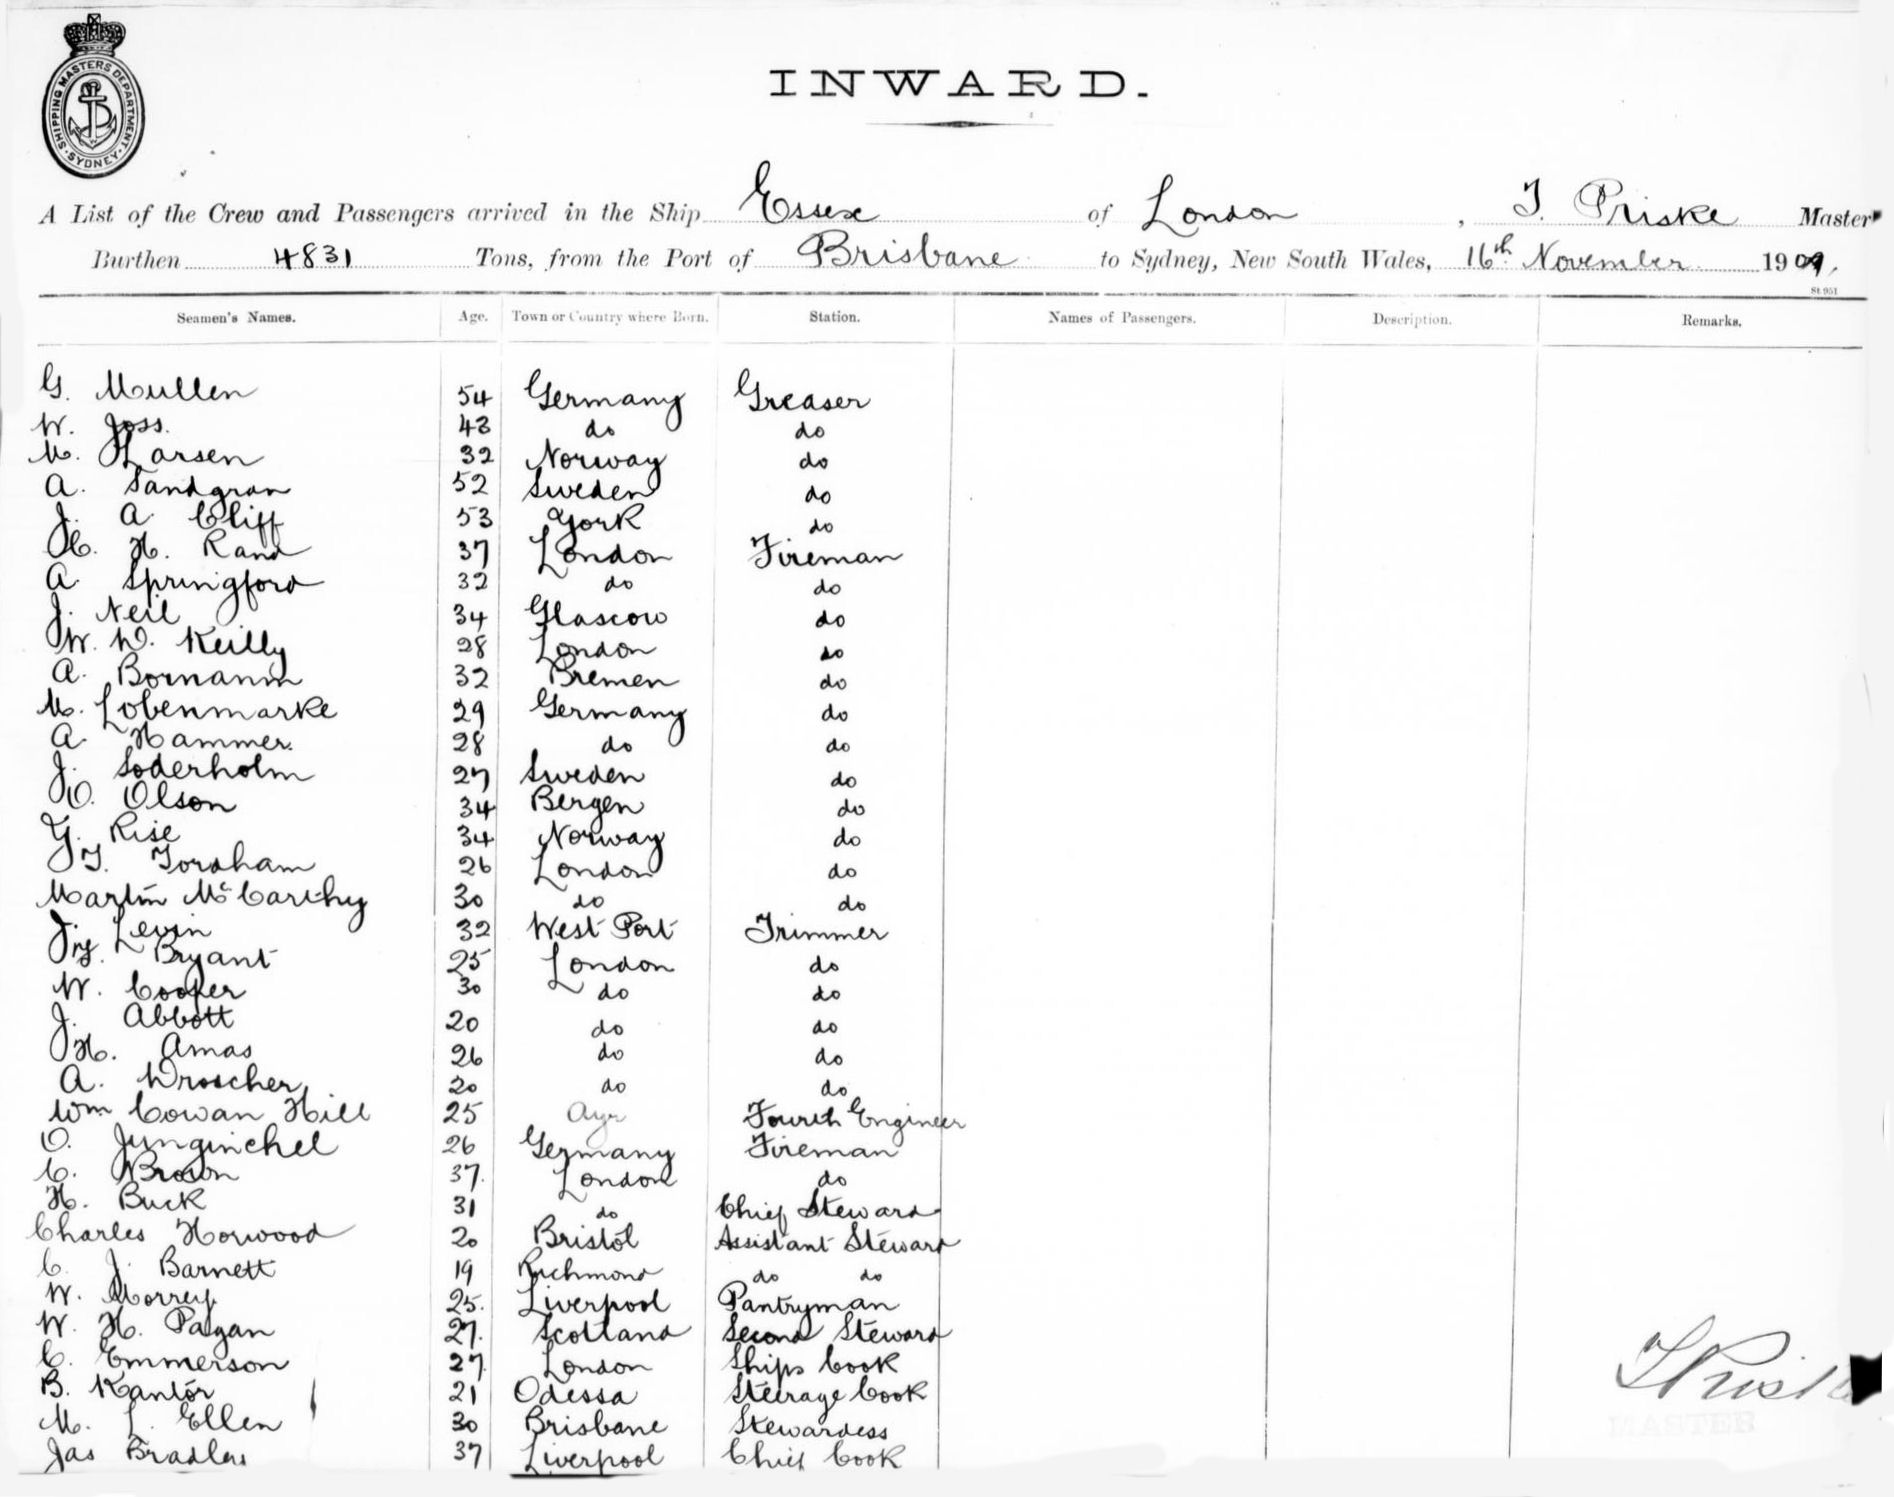 SHIPPING MASTERS DEPARTMENT · SYDNEY ·
INWARD.
A List of the Crew and Passengers arrived in the Ship Essex of London, T. Priske Master
Burthen 4831 Tons, from the Port of Brisbane to Sydney, New South Wales, 16th November 1909.
St. 951
Seamen's Names. Age. Town or Country where Born. Station. Names of Passengers. Description. Remarks.
G. Mullen 54 Germany Greaser
W. Joss. 43 do do
M. Larsen 32 Norway do
A. Sandgran 52 Sweden do
J. A Cliff 53 York do
C. H. Rand 37 London Fireman
A. Springford 32 do do
J. Neil 34 Glascow do
W. W. Keilly 28 London do
A. Bornann 32 Bremen do
M. Lobenmarke 29 Germany do
A Hammer. 28 do do
J. Soderholm 27 Sweden do
O. Olson 34 Bergen do
G. Rise 34 Norway do
T. Fordham 26 London do
Martin McCarthy 30 do do
J. Levin 32 West Port Trimmer
G. Bryant 25 London do
W. Cooper 30 do do
J. Abbott 20 do do
H. Amas 26 do do
A. Wroscher 20 do do
Wm Cowan Hill 25 Ayr Fourth Engineer
O. Junginchel 26 Germany Fireman
C. Brown 37. London do
H. Buck 31 do Chief Steward
Charles Horwood 20 Bristol Assistant Steward
C. J. Barnett 19 Richmond do do
W. Morrey 25. Liverpool Pantryman
W. H. Pagan 27. Scotland Second Steward
C. Emmerson 27. London Ships Cook
B. Kantor 21 Odessa Steerage Cook
M. L. Ellen 30 Brisbane Stewardess
Jas Bradley 37 Liverpool Chief Cook
T Priske
MASTER